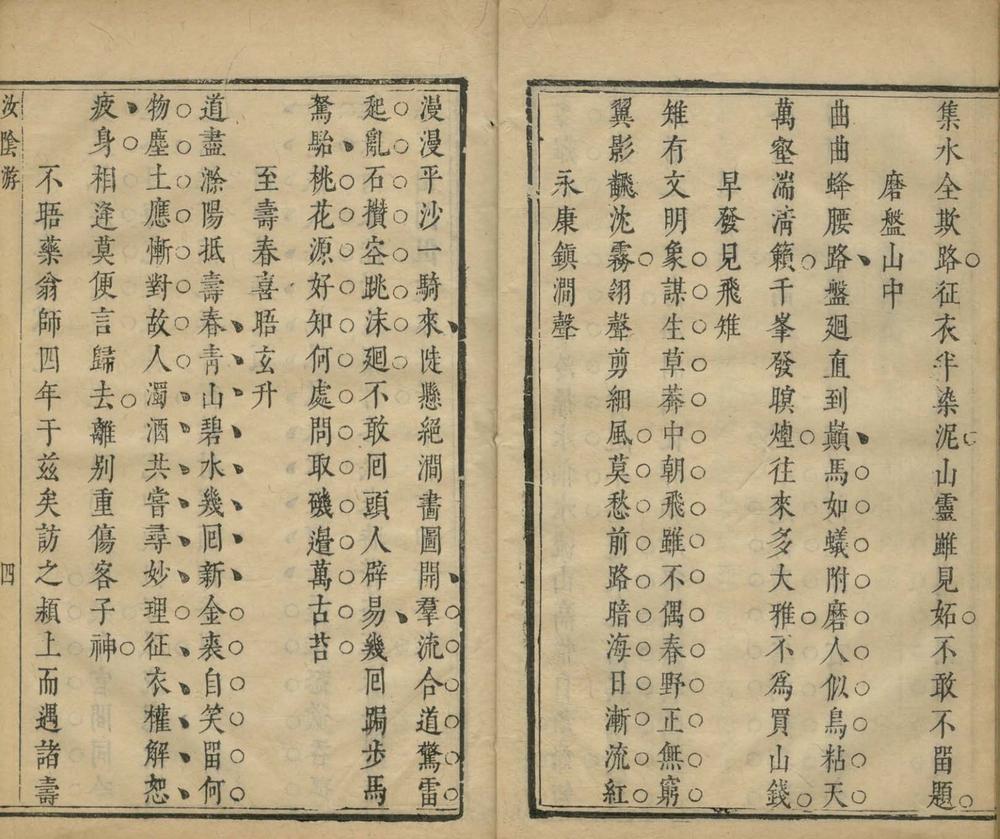 集水全欺路征衣半染泥山靈雖見妬不敢不畱題
磨盤山中
曲曲蜂腰路盤廻直到巔馬如蟻附磨人似鳥粘天
萬壑湍淸籟千峯發暝煙往來多大雅不爲買山錢
早發見飛雉
雉有文明象謀生草莽中朝飛雖不偶春野正無窮
翼影飜沈霧翎聲剪細風莫愁前路暗海日漸流紅
永康鎭澗聲
漫漫平沙一騎來陡懸絕澗畵圖開羣流合道驚雷
起亂石攢空跳沫廻不敢囘頭人辟易幾囘跼步馬
駑駘桃花源好知何處問取磯邉萬古苔
至壽春喜晤玄升
道盡滁陽抵壽春靑山碧水幾囘新金裘自笑畱何
物塵土應慚對故人濁酒共嘗尋妙理征衣權解恕
疲身相逢莫便言歸去離别重傷客子神
不晤藥翁師四年于茲矣訪之潁上而遇諸壽
汝陰游
四